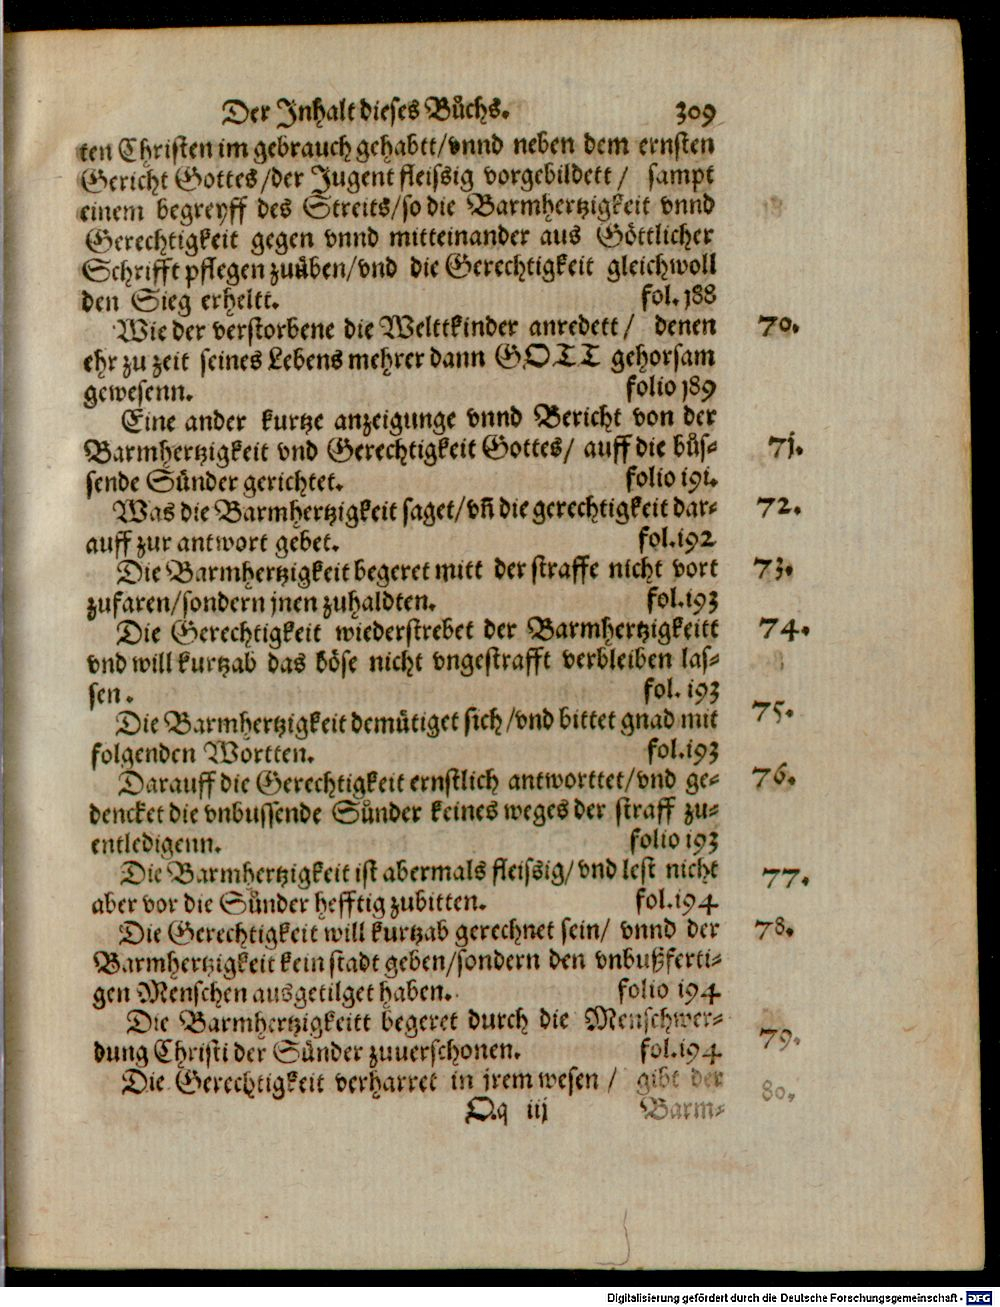 Der Inhalt dieses Bůchs. 309
ten Christen im gebrauch gehabtt/vnnd neben dem ernsten
Gericht Gottes/der Jugent fleissig vorgebildett/ sampt
einem begreyff des Streits/so die Barmhertzigkeit vnnd
Gerechtigkeit gegen vnnd mitteinander aus Göttlicher
Schrifft pflegen zuůben/vnd die Gerechtigkeit gleichwoll
den Sieg erheltt. fol. 188
Wie der verstorbene die Welttkinder anredett/ denen 70.
ehr zu zeit seines Lebens mehrer dann GOTT gehorsam
gewesenn. folio 189
Eine ander kurtze anzeigunge vnnd Bericht von der
Barmhertzigkeit vnd Gerechtigkeit Gottes/ auff die bůs- 71.
sende Sůnder gerichtet. folio 191.
Was die Barmhertzigkeit saget/vñ die gerechtigkeit dar- 72.
auff zur antwort gebet. fol.192
Die Barmhertzigkeit begeret mitt der straffe nicht vort 73.
zufaren/sondern jnen zuhaldten. fol.193
Die Gerechtigkeit wiederstrebet der Barmhertzigkeitt 74.
vnd will kurtzab das böse nicht vngestrafft verbleiben las-
sen. fol. 193
Die Barmhertzigkeit demůtiget sich/vnd bittet gnad mit 75.
folgenden Wortten. fol.193
Darauff die Gerechtigkeit ernstlich antworttet/vnd ge- 76.
dencket die vnbussende Sůnder keines weges der straff zu-
entledigenn. folio 193
Die Barmhertzigkeit ist abermals fleissig/vnd lest nicht 77.
aber vor die Sůnder hefftig zubitten. fol.194
Die Gerechtigkeit will kurtzab gerechnet sein/ vnnd der 78.
Barmhertzigkeit kein stadt geben/sondern den vnbußferti-
gen Menschen ausgetilget haben. folio 194
Die Barmhertzigkeitt begeret durch die Menschwer-
dung Christi der Sůnder zuuerschonen. fol.194 79.
Die Gerechtigkeit verharret in jrem wesen/ gibt der 80.
Qq iij Barm-
Digitalisierung gefördert durch die Deutsche Forschungsgemeinschaft - DFG